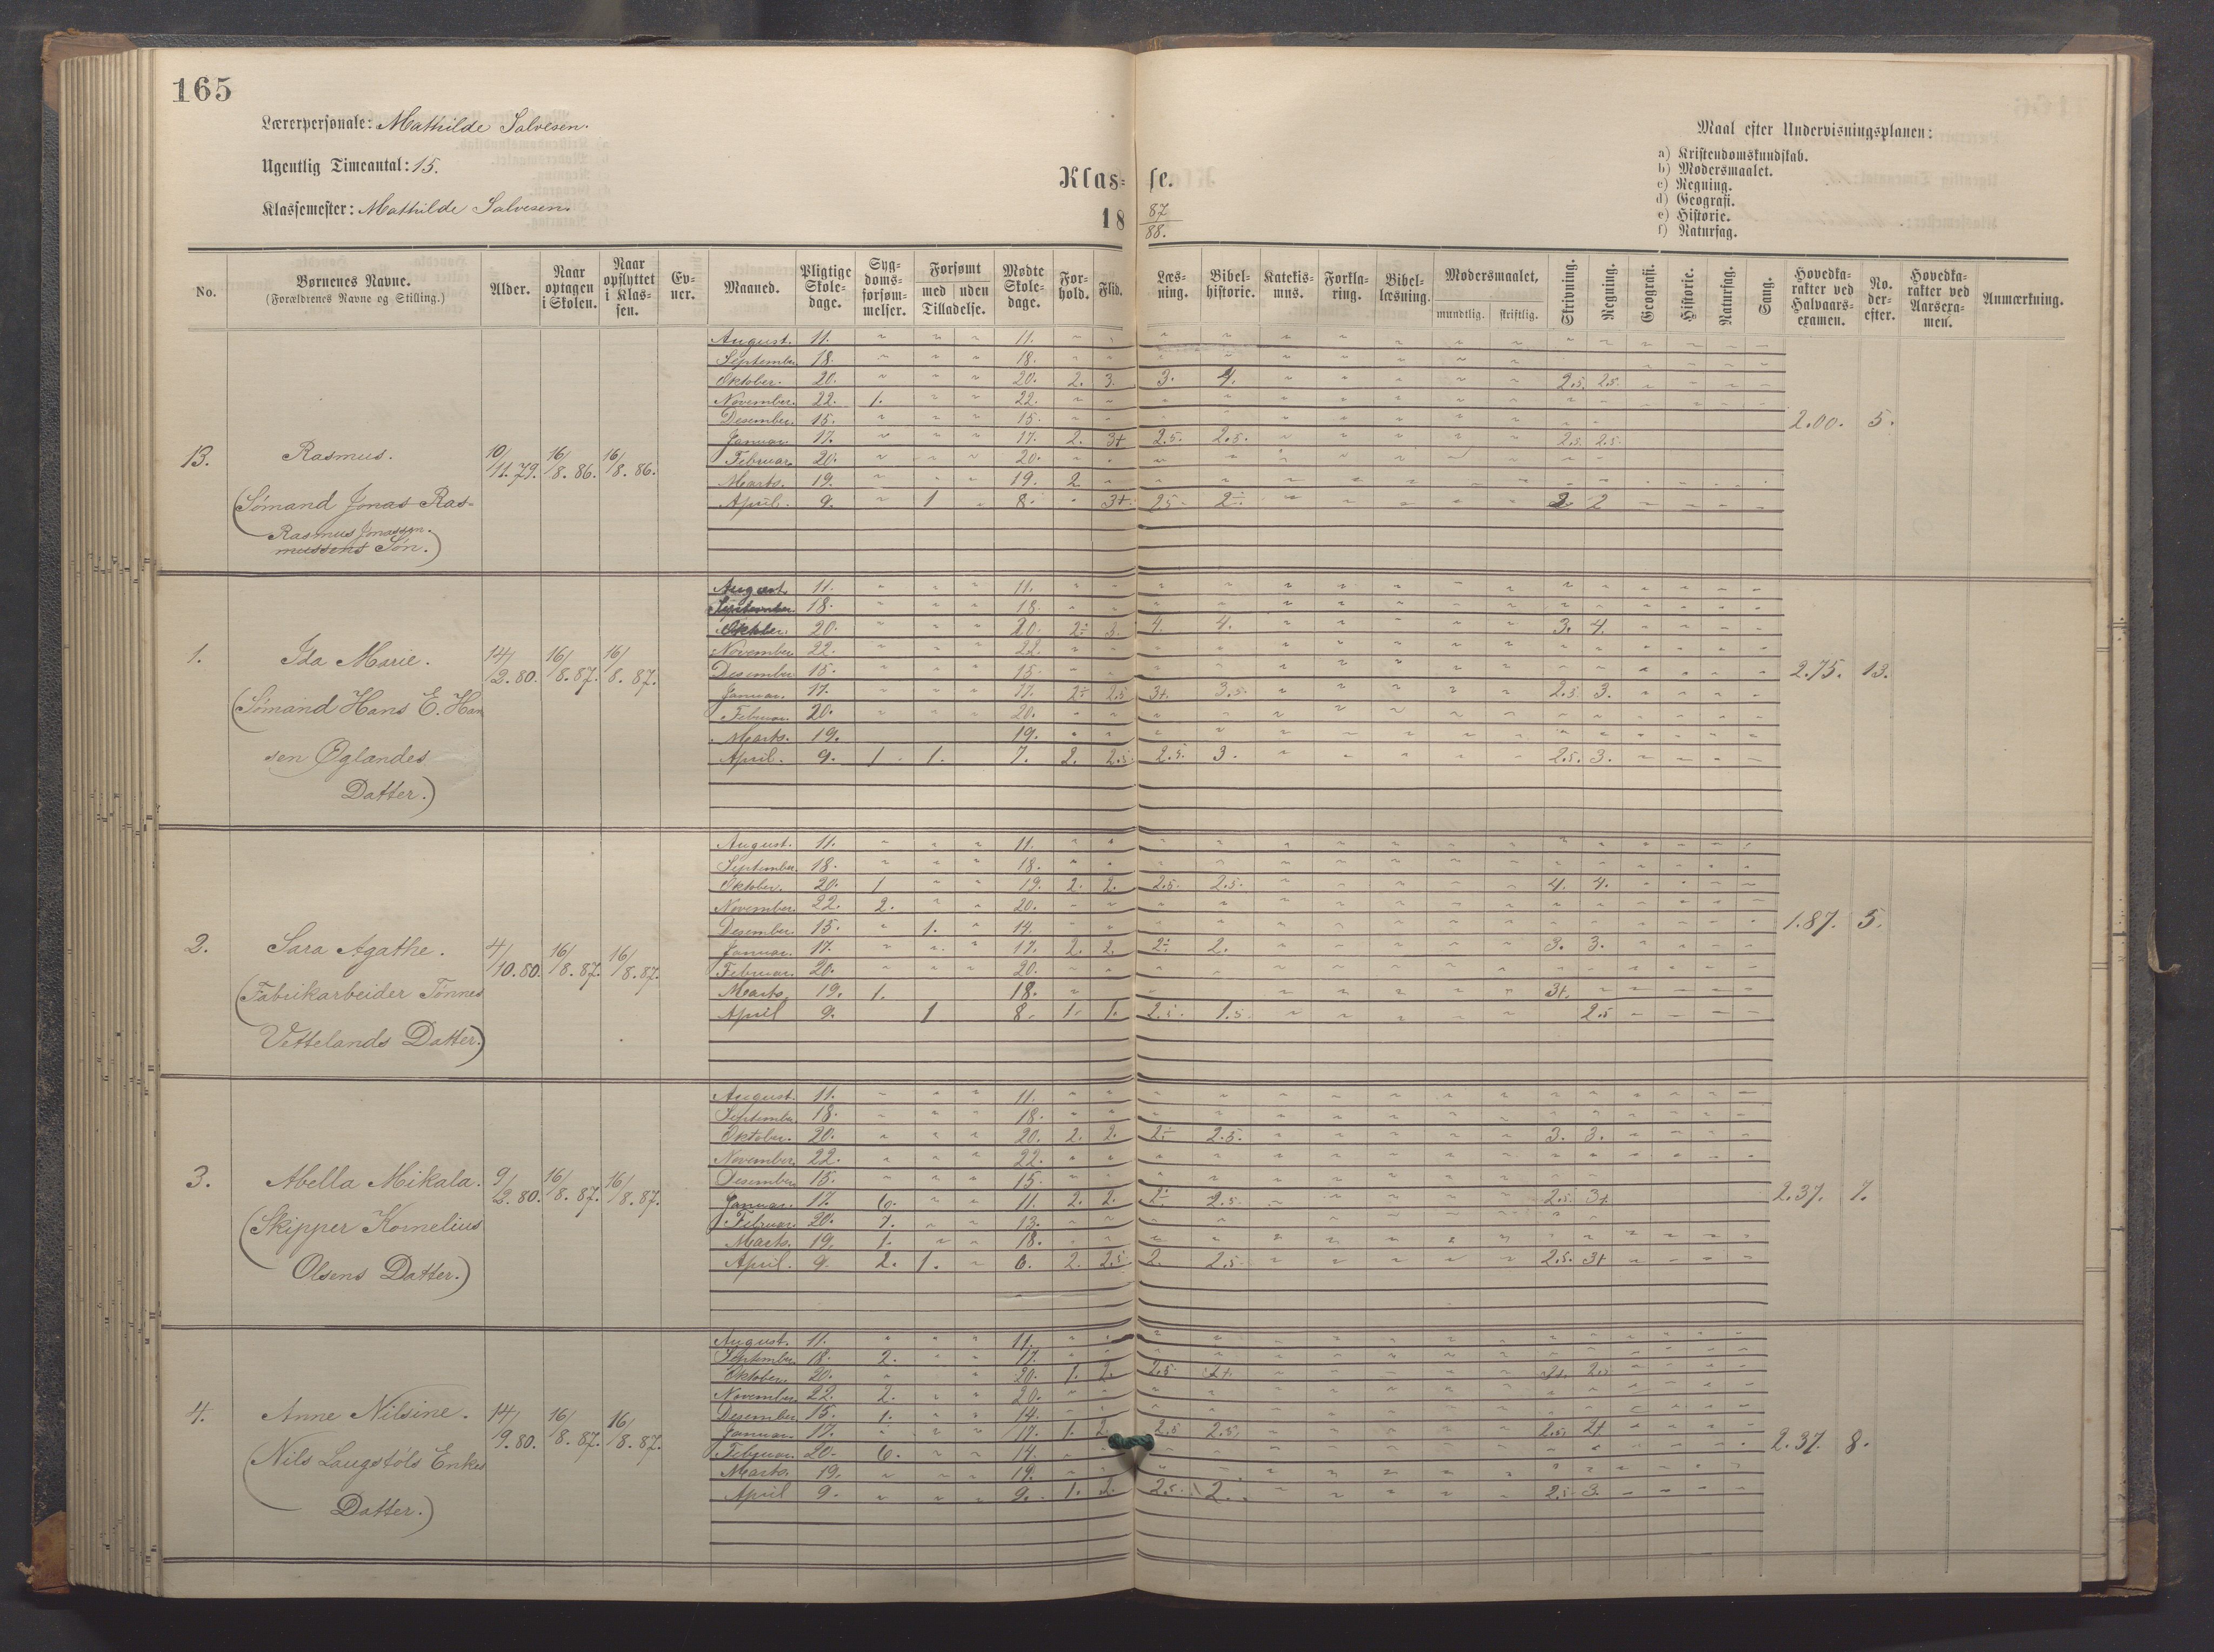 165
Lærerpersonale: Mathilde Salvesen.
Ugentlig Timeantal: 15.
Klassemester: Mathilde Salvesen.
Klasse.
18 87/88.
Maal efter Undervisningsplanen:
a) Kristendomskundskab.
b) Modersmaalet.
c) Regning.
d) Geografi.
e) Historie.
f) Naturfag.
No. Børnenes Navne. (Forældrenes Navne og Stilling.) Alder. Naar optagen i Skolen. Naar opflyttet i Klassen. Evner. Maaned. Pligtige Skoledage. Sygdomsforsømmelser. Forsømt med uden Tilladelse. Mødte Skoledage. Forhold. Flid. Læsning. Bibelhistorie. Katekismus. Forklaring. Bibellæsning. Modersmaalet, mundtlig. skriftlig. Skrivning. Regning. Geografi. Historie. Naturfag. Sang. Hovedkarakter ved Halvaarsexamen. No. derefter. Hovedkarakter ved Aarsexamen. Anmærkning.
13. Rasmus. 10/11.79. 16/8.86. 16/8.86. 2.00. 5.
(Sømand Jonas Ras-
Rasmus Jonassen.
mussens Søn.)
August. 11. " " " 11.
September 18. " " " 18.
Oktober. 20. " " " 20. 2. 3. 3. 4. 2.5. 2.5.
November. 22. 1. " " 22.
Desember. 15. " " " 15.
Januar. 17. " " " 17. 2. 3+ 2.5. 2.5. 2.5. 2.5.
Februar. 20. " " " 20.
Marts. 19. " " " 19. 2
April. 9. " 1 " 8. " 3+ 2.5. 2÷ 2 2
1. Ida Marie. 14/2.80. 16/8.87. 16/8.87. 2.75. 13.
(Sømand Hans E. Han
sen Øglandes
Datter.)
August. 11. " " " 11.
September 18. " " " 18.
Oktober. 20. " " " 20. 2÷ 3. 4. 4. 3. 4.
November 22. " " " 22.
Desember 15. " " " 15.
Januar. 17. " " " 17. 2÷ 2.5 3+. 3.5. 2.5. 3.
Februar. 20. " " " 20.
Marts. 19. 19.
April. 9. 1. 1. 7. 2. 2.5. 2.5. 3. 2.5. 3.
2. Sara Agathe. 4/10.80. 16/8.87. 16/8.87. 1.87. 5.
(Fabrikarbeider Tønnes
Vettelands Datter.)
August. 11. " " " 11.
September. 18. " " " 18.
Oktober. 20. 1 " " 19. 2. 2. 2.5. 2.5. 4. 4.
November. 22. 2. " " 20.
Desember. 15. " 1. " 14.
Januar. 17. " " " 17. 2. 2. 2÷ 2. 3. 3.
Februar. 20. " " " 20.
Marts. 19. 1. 18. 3+.
April 9. 1 8. 1. 1. 2.5. 1.5. 2.5
3. Abella Mikala. 9/2.80. 16/8.87. 16/8.87. 2.37. 7.
(Skipper Kornelius
Olsens Datter.)
August. 11. " " " 11.
September 18. " " " 18.
Oktober. 20. " " " 20. 2. 2. 2÷ 2.5. 3. 3.
November. 22. " " " 22.
Desember 15. " " " 15.
Januar. 17. 6. " " 11. 2. 2. 2÷ 2.5. 2.5. 3+
Februar. 20. 7. " " 13.
Marts. 19. 1. " " 18.
April. 9. 2. 1. " 6. 2. 2.5 2. 2.5. 2.5. 3+
4. Anne Nilsine. 14/9.80. 16/8.87. 16/8.87. 2.37. 8.
(Nils Laugstøls Enkes
Datter.)
August. 11. " " " 11.
September 18. 2. " " 17.
Oktober. 20. " " 20. 1. 2. 2.5 2+.
November 22. 2. " " 20.
Desember 15. 1. " " 14.
Januar. 17. " " " 17. 1. 2. 2.5 2.5. 2.5. 2+
Februar. 20. 6. " " 14.
Marts. 19. " " " 19.
April 9. " " " 9. 1. 2. 2.5. 2. 2.5. 3.